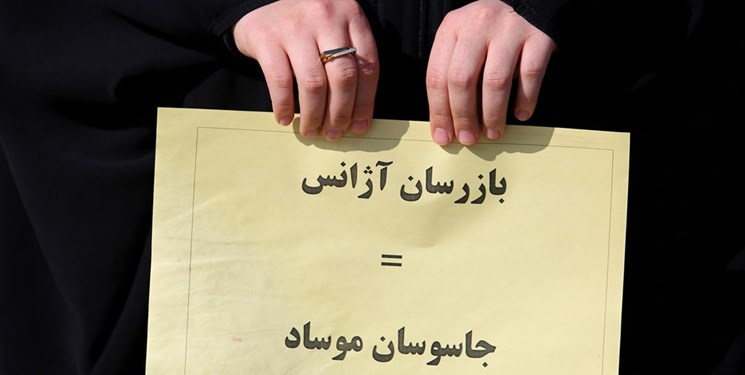 بازرسان آژانس
=
جاسوسان موساد